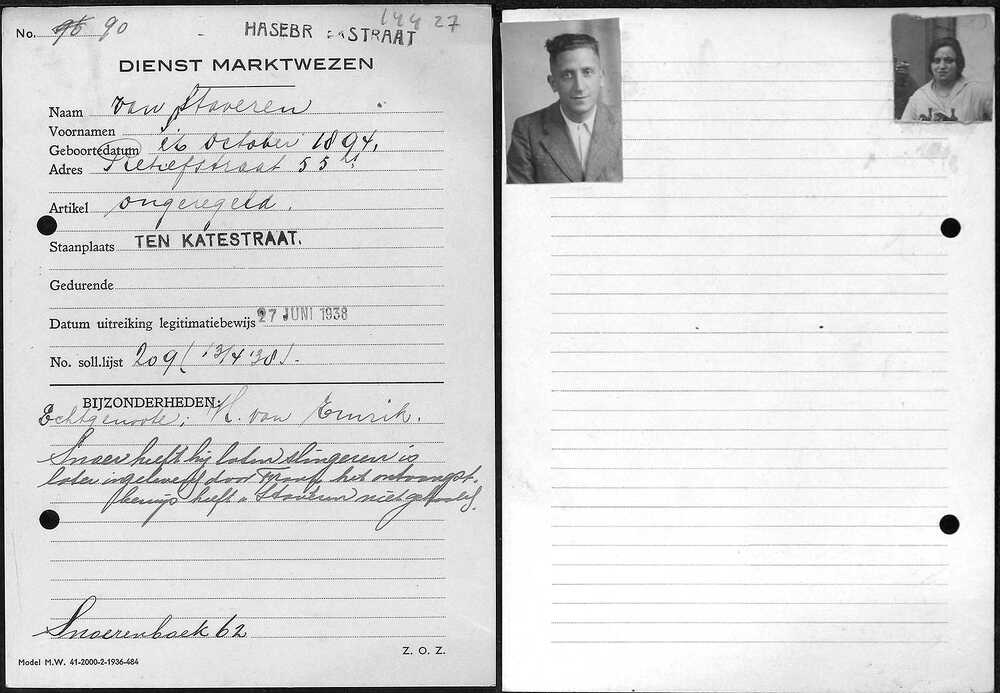 No. 90
144 27
HASEBR EKSTRAAT
DIENST MARKTWEZEN
Naam van Staveren
Voornamen
Geboortedatum 16 October 1894.
Adres Retiefstraat 55 hs
Artikel ongeregeld.
Staanplaats TEN KATESTRAAT.
Gedurende
Datum uitreiking legitimatiebewijs 27 JUNI 1938
No. soll.lijst 209 (13/4 '38).
BIJZONDERHEDEN:
Echtgenoote: K. van Emrik.
Snoer heeft hij laten slingeren is
later ingeleverd door Fraaf het ontvangst-
bewijs heeft v Staveren niet gehaald.
Snoerenboek 62
Z. O. Z.
Model M.W. 41-2000-2-1936-484